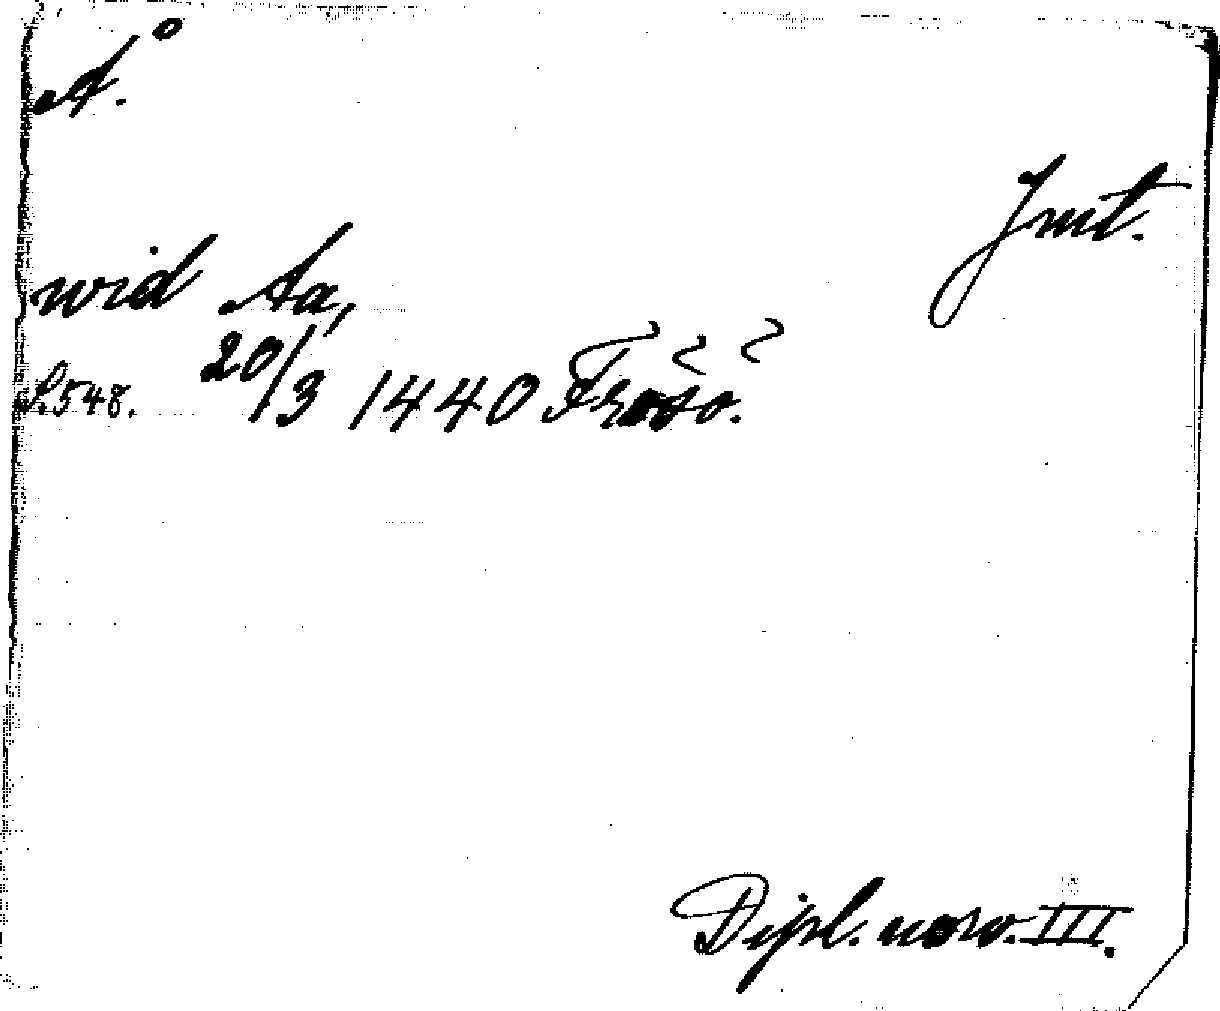 Å.
Jmt.
wid Aa,
S. 548. 20/3 1440 Frösö.
Dipl. norv. III.